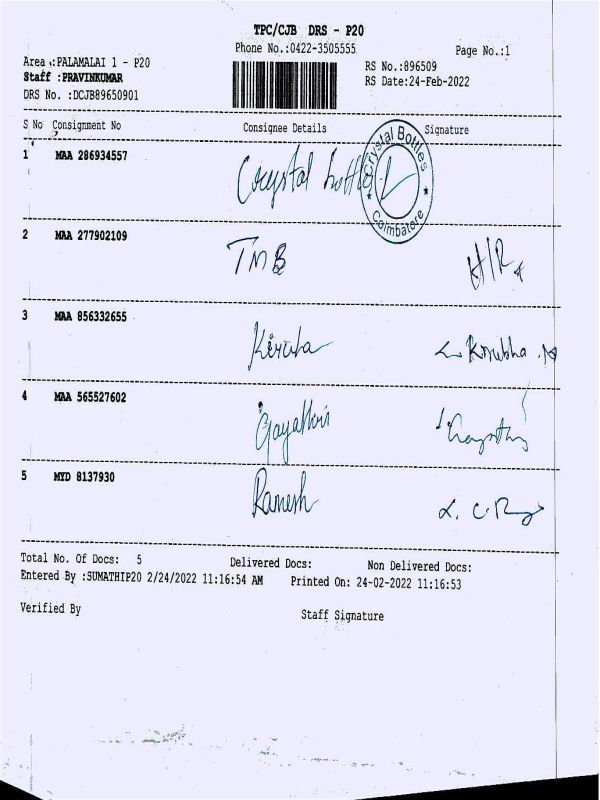 TPC/CJB DRS - P20
Phone No.:0422-3505555
Page No.:1
Area :PALAMALAI 1 - P20
RS No.:896509
Staff :PRAVINKUMAR
RS Date:24-Feb-2022
DRS No. :DCJB89650901
S No Consignment No Consignee Details Signature
1 MAA 286934557 Crystal bottle
Crystal Bottles
Coimbatore
2 MAA 277902109 TMB
3 MAA 856332655 Kiruba Kirubha
4 MAA 565527602 Gayathri
5 MYD 8137930 Ramesh
Total No. Of Docs: 5 Delivered Docs: Non Delivered Docs:
Entered By :SUMATHIP20 2/24/2022 11:16:54 AM Printed On: 24-02-2022 11:16:53
Verified By Staff Signature